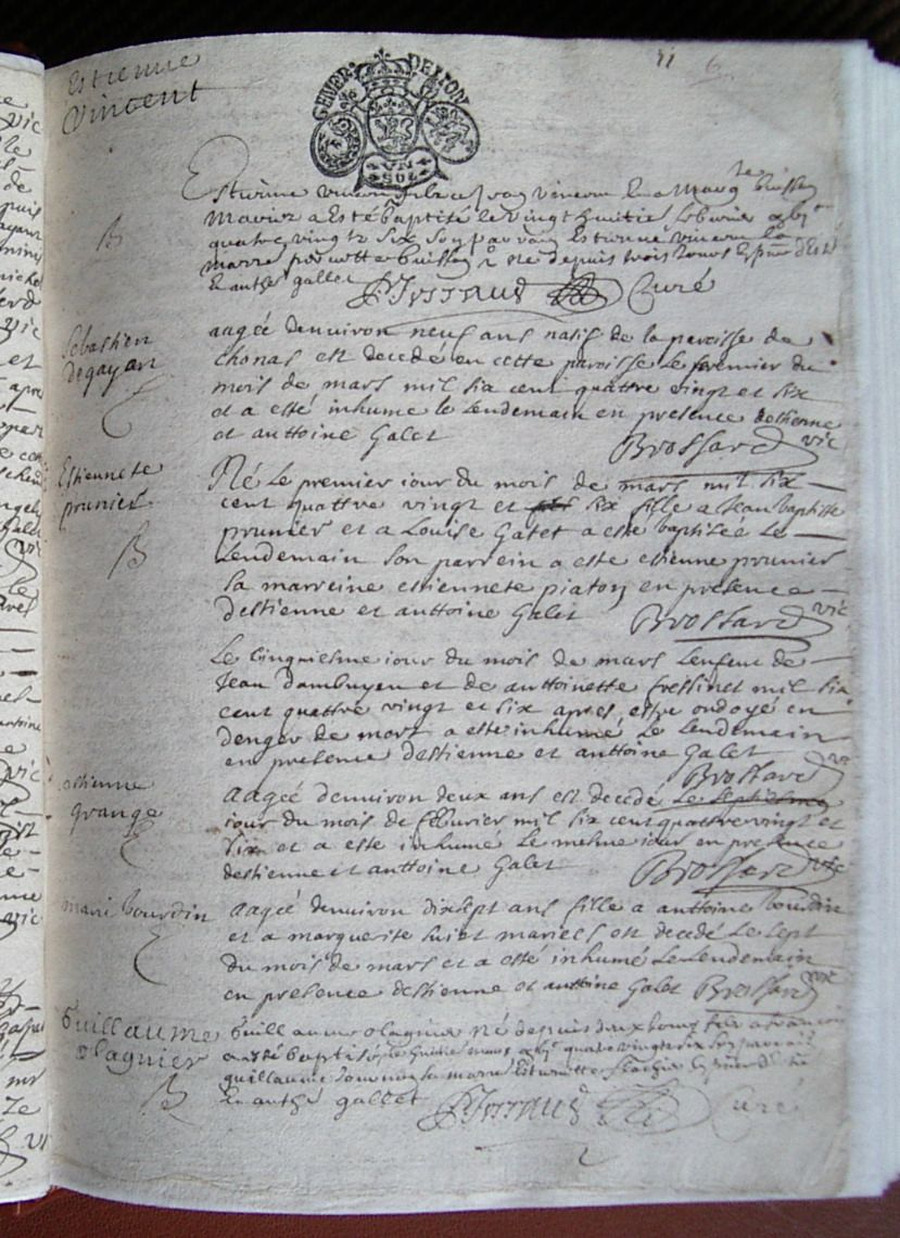 Estienne
Vincent
GENER DE LION
UN
SOL
11 6
Estienne vincent fils a vincent et a Marg buisson
Mariez a Esté baptisé le vingt huitie
quatre vingt six son parrain Estienne vincent la
marre buisson ne depuis trois Jours
B
Et anthe gallet Curé
Sebastien
degayan
aagée denuiron neuf ans natif de la paroisse de
chonas est decedé en cette paroisse le premier du
mois de mars mil six cent quattre vingt et six
et a esté inhume le lendemain en presence destienne
et anttoine Galet Brossard vic
Estiennete
prunier
B
Né Le premier iour du mois de mars mil six
cent quattre vingt et six fille a Jean baptiste
prunier et a Louise Gatet a este baptisée Le
Lendemain son parrein a este estienne prunier
La marreine estiennete piaton en presence
destienne et anttoine Galet Brossard vic
Le Cinquiesme iour du mois de mars Lenfent de
Jean dambuyen et de anttoinette fressinet mil six
cent quattre vingt et six apres estre ondoyé en
denger de mort a este inhumé Le Lendemain
en presence destienne et anttoine Galet
Brossard vic
estienne
Grange
aagée denuiron deux ans est decedé Le septiesme
iour du mois de feburier mil six cent quattre vingt et
six et a este inhumé Le mesme iour en presence
destienne et anttoine Galet Brossard vic
marie bourdin
aagée denuiron dixsept ans fille a anttoine bourdin
et a marguerite mariées est decedé Le sept
du mois de mars et a esté inhumé Le Lendemain
en presence destienne et anttoine Galet Brossard vic
Guillaume
olagnier
B
Guillaume olagnier né depuis deux Jours fils a francois
a esté baptisé le huitie mars quatre vingtz six son parrain
guillaume la marre Estiennette
Et anthe gallet Curé